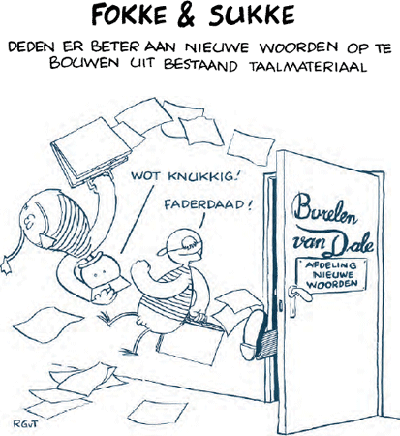 FOKKE & SUKKE
DEDEN ER BETER AAN NIEUWE WOORDEN OP TE
BOUWEN UIT BESTAAND TAALMATERIAAL
WOT KNUKKIG!
FADERDAAD!
Burelen
van Dale
AFDELING
NIEUWE
WOORDEN
RGvT